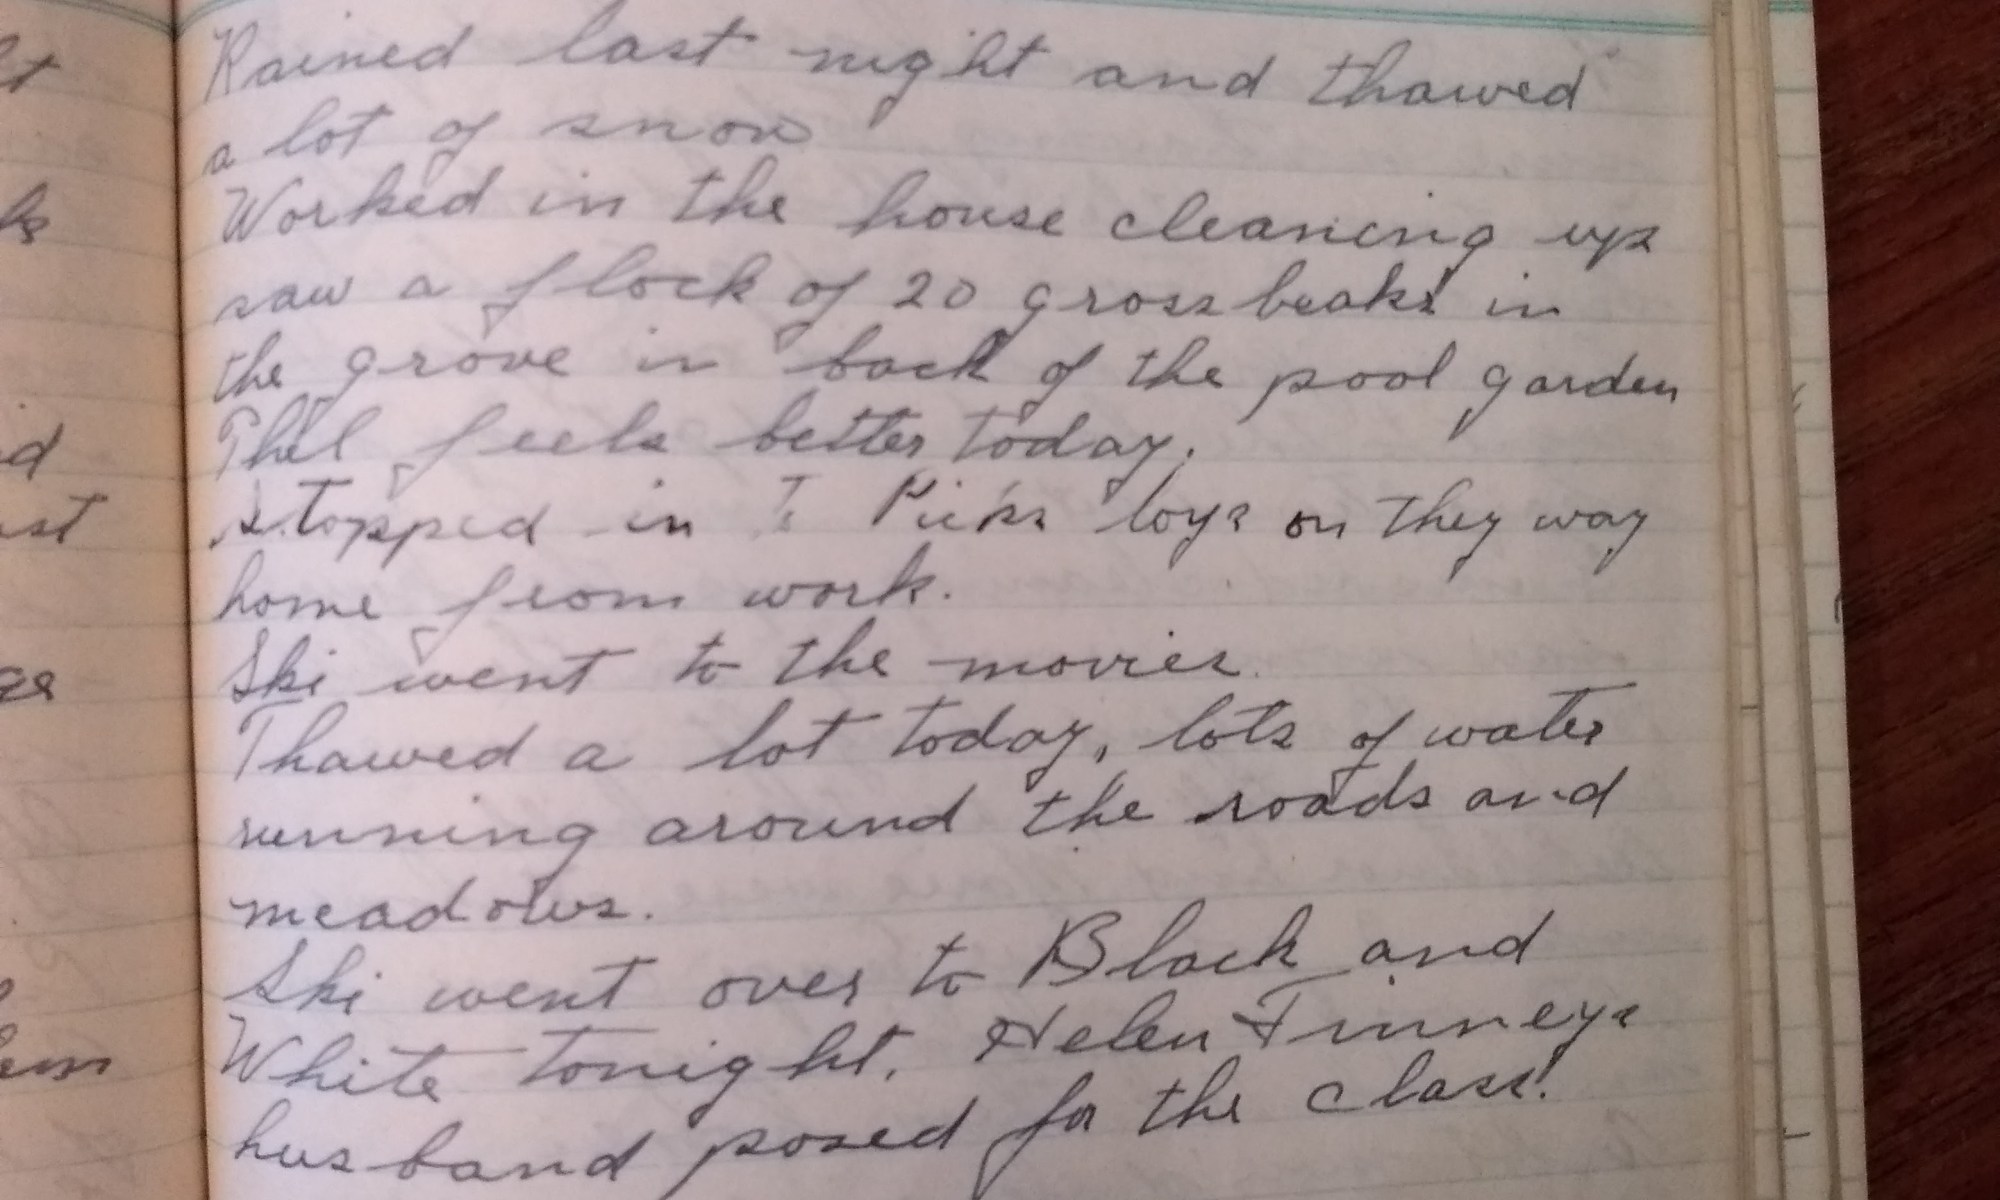 Rained last night and thawed
a lot of snow
Worked in the house cleaning up
saw a flock of 20 grossbeaks in
the grove in back of the pool garden
Phil feels better today.
Stopped in on they way
home from work.
Ski went to the movies.
Thawed a lot today, lots of water
running around the roads and
meadows.
Ski went over to Black and
White tonight. Helen Finneys
husband posed for the class.